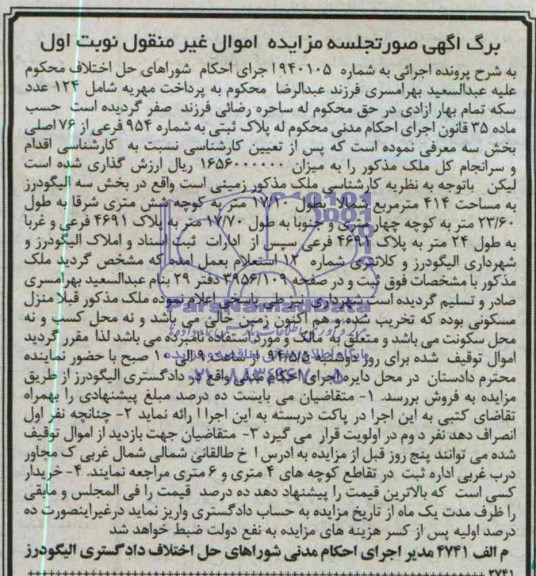 برگ آگهی صورتجلسه مزایده اموال غیر منقول نوبت اول
به شرح پرونده اجرائی به شماره ۱۹۴۰۱۰۵ جرای احکام شوراهای حل اختلاف محکوم
علیه عبدالسعید بهرامسری فرزند عبدالرضا محکوم به پرداخت مهریه شامل ۱۲۴ عدد
سکه تمام بهار ازادی در حق محکوم له ساحره رضائی فرزند صفر گردیده است حسب
ماده ۳۵ قانون اجرای احکام مدنی محکوم له پلاک ثبتی به شماره ۹۵۴ فرعی از ۷۶ اصلی
بخش سه معرفی نموده است که پس از تعیین کارشناسی نسبت به کارشناسی اقدام
و سرانجام کل ملک مذکور را به میزان ۱۶۵۶۰۰۰۰۰۰ ریال ارزش گذاری شده است
لیکن باتوجه به نظریه کارشناسی ملک مذکور زمینی است واقع در بخش سه الیگودرز
به مساحت ۴۱۴ مترمربع شمالا بطول ۱۷/۲۰ متر به کوچه شش متری شرقا به طول
۲۳/۶۰ متر به کوچه چهار متری و جنوبا به طول ۱۷/۷۰ متر به پلاک ۴۶۹۱ فرعی و غربا
به طول ۲۴ متر به پلاک ۴۶۹۱ فرعی سپس از ادارات ثبت اسناد و املاک الیگودرز و
شهرداری الیگودرز و کلانتری شماره ۱۲ استعلام بعمل امده که مشخص گردید ملک
مذکور با مشخصات فوق ثبت و در صفحه ۳۹۵۶/۱۰۹ دفتر ۲۹ بنام عبدالسعید بهرامسری
صادر و تسلیم گردیده است شهرداری نیز طی پاسخی اعلام نموده ملک مذکور قبلا منزل
مسکونی بوده که تخریب شده و هم اکنون زمین خالی می باشد و نه محل کسب و نه
محل سکونت می باشد و متعلق به مالک و مورد استفاده نامبرده می باشد لذا مقرر گردید
اموال توقیف شده برای روز دوشنبه ۹۴/۵/۵ از ساعت ۹ الی ۱۰ صبح با حضور نماینده
محترم دادستان در محل دایره اجرای احکام مدنی واقع در دادگستری الیگودرز از طریق
مزایده به فروش بررسد. ۱- متقاضیان می بایست ده درصد مبلغ پیشنهادی را بهمراه
تقاضای کتبی به این اجرا در پاکت دربسته به این اجرا ارائه نماید ۲- چنانچه نفر اول
انصراف دهد نفر دوم در اولویت قرار می گیرد ۳- متقاضیان جهت بازدید از اموال توقیف
شده می توانند پنج روز قبل از مزایده به ادرس ا خ طالقانی شمالی شمال غربی ک مجاور
درب غربی اداره ثبت در تقاطع کوچه های ۴ متری و ۶ متری مراجعه نمایند. ۴- خریدار
کسی است که بالاترین قیمت را پیشنهاد دهد ده درصد قیمت را فی المجلس و مابقی
را ظرف مدت یک ماه از تاریخ مزایده به حساب دادگستری واریز نماید درغیراینصورت ده
درصد اولیه پس از کسر هزینه های مزایده به نفع دولت ضبط خواهد شد
م الف ۴۷۴۱ مدیر اجرای احکام مدنی شوراهای حل اختلاف دادگستری الیگودرز
۴۷۴۱
ParsNamadData